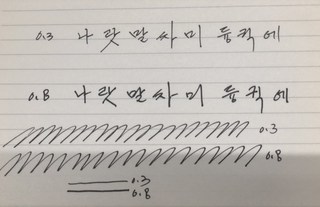 0.3 나 랏 말 싸 미 듕 귁 에
0.8 나 랏 말 싸 미 듕 귁 에
0.3
0.8
0.3
0.8